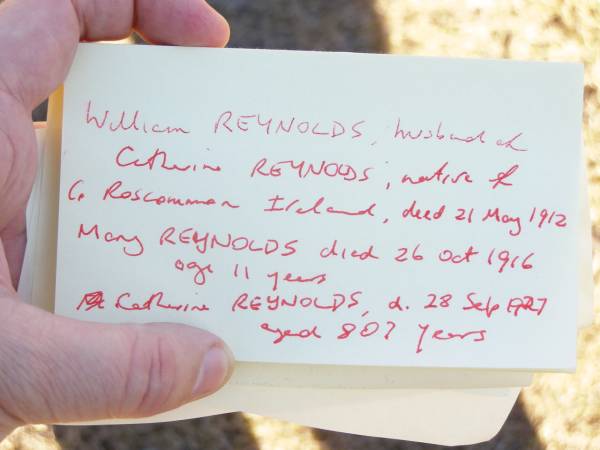 William REYNOLDS, husband of
Catherine REYNOLDS, native of
Co Roscommon Ireland, died 21 May 1912
Mary REYNOLDS died 26 Oct 1916
age 11 years
Catherine REYNOLDS, d. 28 Sep
aged 80? years